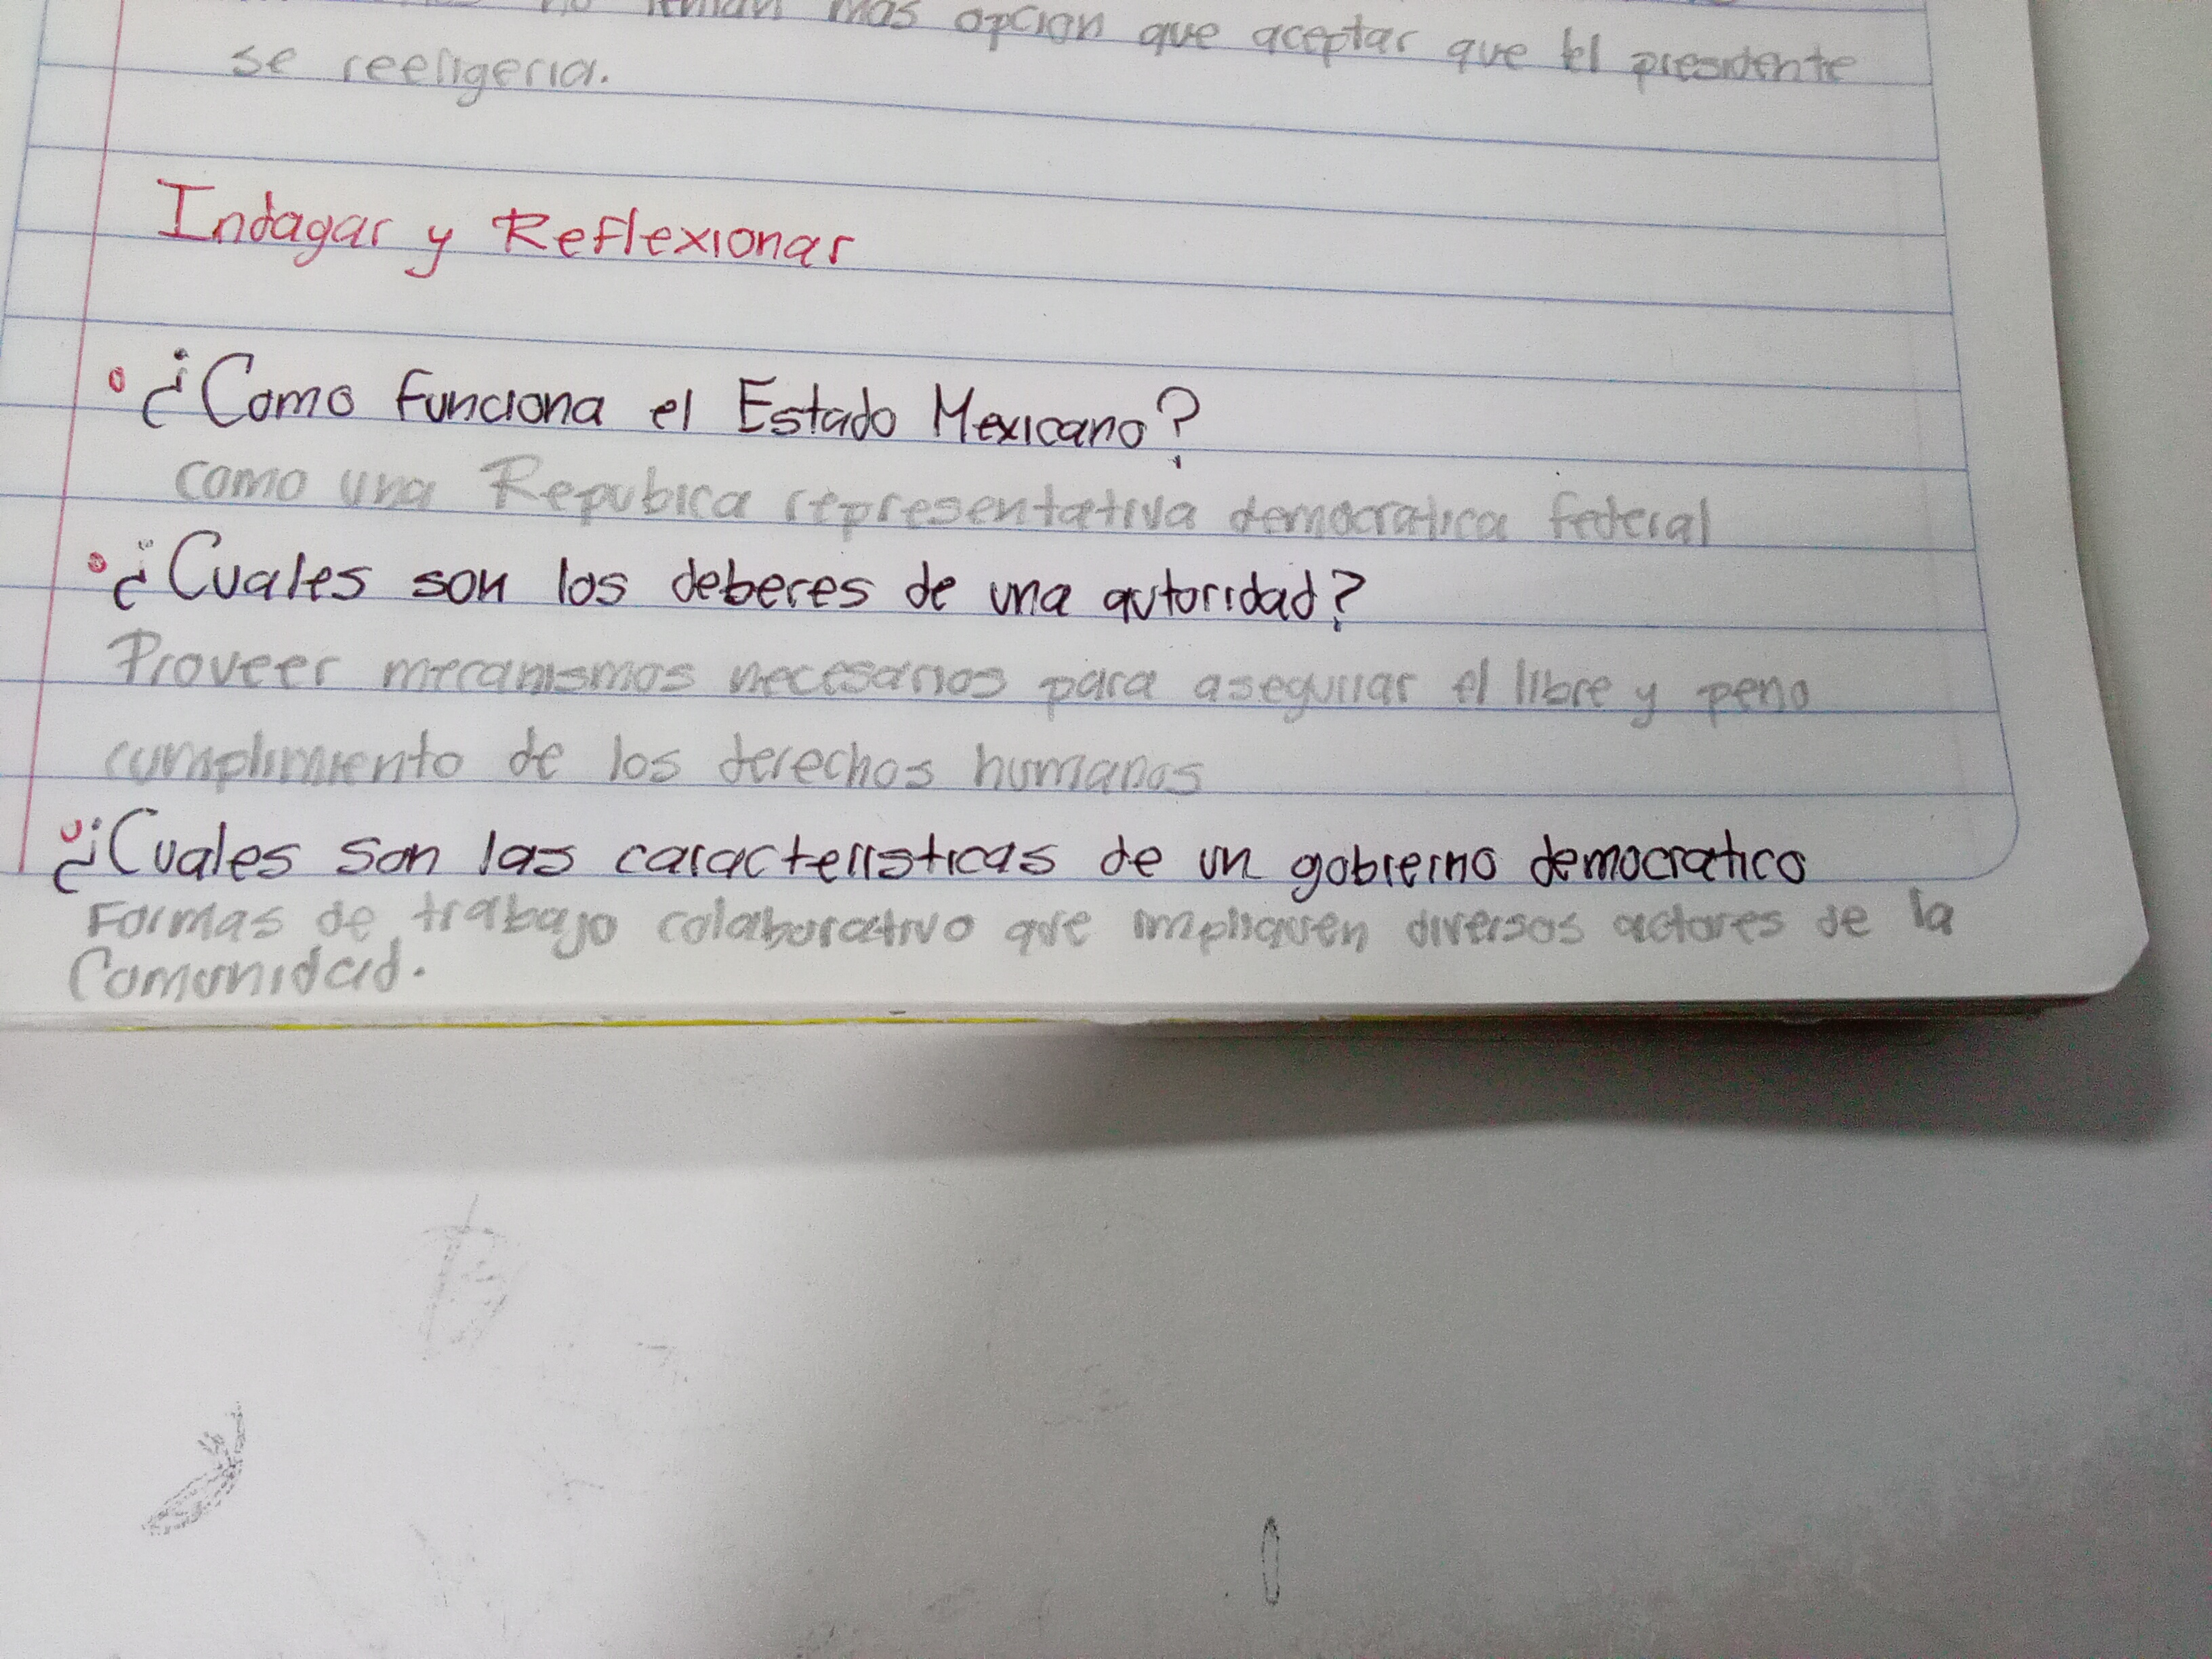 no tenian mas opcion que aceptar que el presidente
se reeligeria.
Indagar y Reflexionar
¿Como funciona el Estado Mexicano?
como una Repubica representativa democratica federal
¿Cuales son los deberes de una autoridad?
Proveer mecanismos necesarios para asegurar el libre y peno
cumplimiento de los derechos humanos
¿Cuales son las caracteristicas de un gobierno democratico
Formas de trabajo colaborativo que impliquen diversos actores de la
Comunidad.